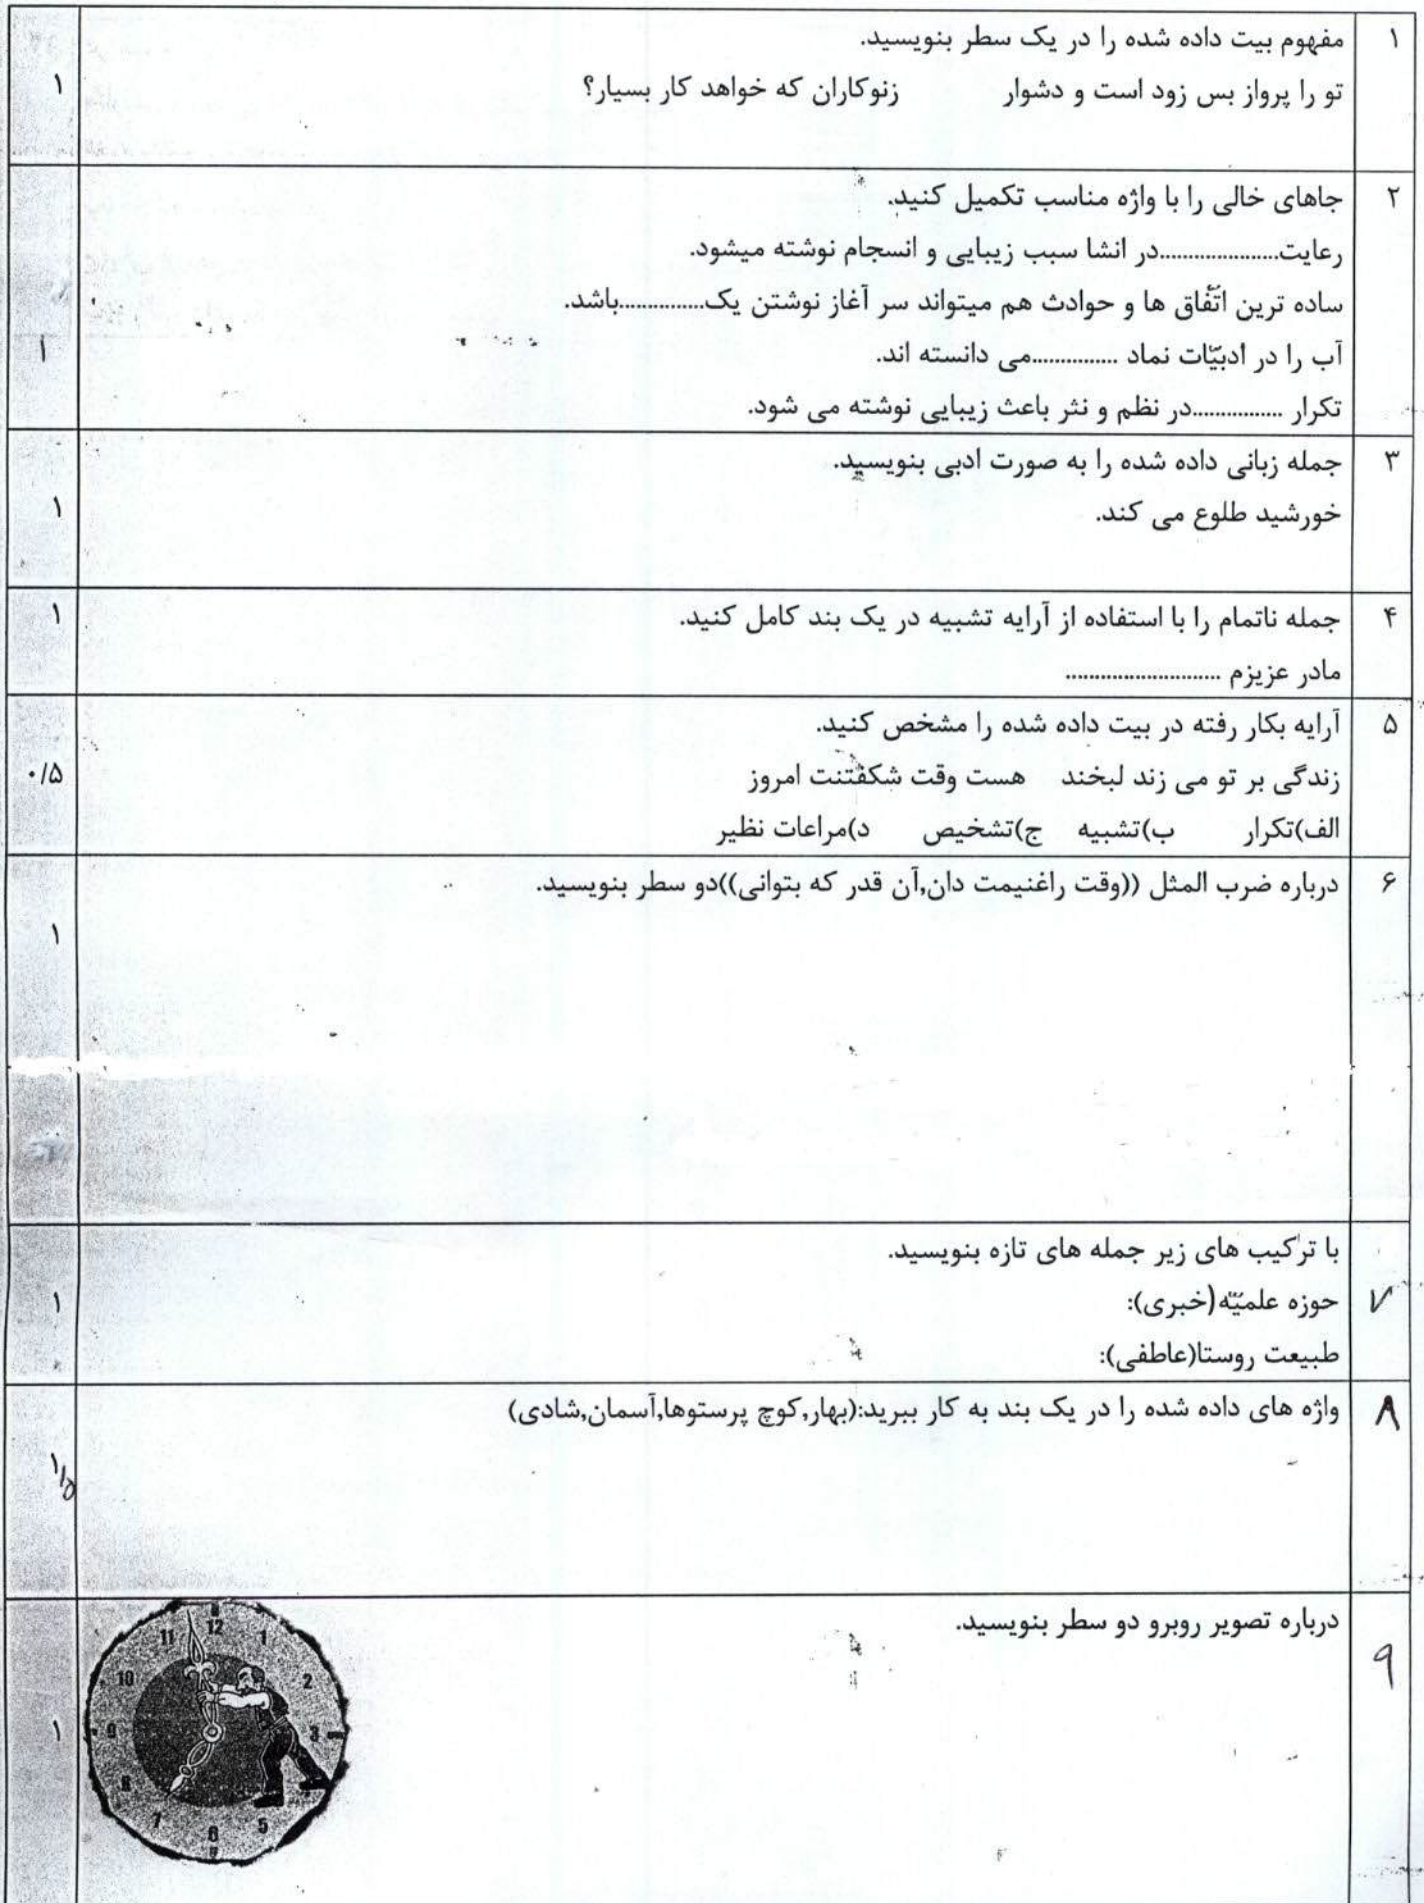 ۱
مفهوم بیت داده شده را در یک سطر بنویسید.
تو را پرواز بس زود است و دشوار زنوکاران که خواهد کار بسیار؟
۱
۲
جاهای خالی را با واژه مناسب تکمیل کنید.
رعایت.....................در انشا سبب زیبایی و انسجام نوشته میشود.
ساده ترین اتّفاق ها و حوادث هم میتواند سر آغاز نوشتن یک...............باشد.
آب را در ادبیّات نماد ...............می دانسته اند.
تکرار ................در نظم و نثر باعث زیبایی نوشته می شود.
۱
۳
جمله زبانی داده شده را به صورت ادبی بنویسید.
خورشید طلوع می کند.
۱
۴
جمله ناتمام را با استفاده از آرایه تشبیه در یک بند کامل کنید.
مادر عزیزم ...........................
۱
۵
آرایه بکار رفته در بیت داده شده را مشخص کنید.
زندگی بر تو می زند لبخند هست وقت شکفتنت امروز
الف)تکرار ب)تشبیه ج)تشخیص د)مراعات نظیر
۰/۵
۶
درباره ضرب المثل ((وقت راغنیمت دان,آن قدر که بتوانی))دو سطر بنویسید.
۱
۷
با ترکیب های زیر جمله های تازه بنویسید.
حوزه علمیّه(خبری):
طبیعت روستا(عاطفی):
۱
۸
واژه های داده شده را در یک بند به کار ببرید:(بهار,کوچ پرستوها,آسمان,شادی)
۱/۵
۹
درباره تصویر روبرو دو سطر بنویسید.
۱
12
1
2
3
5
6
7
8
9
10
11